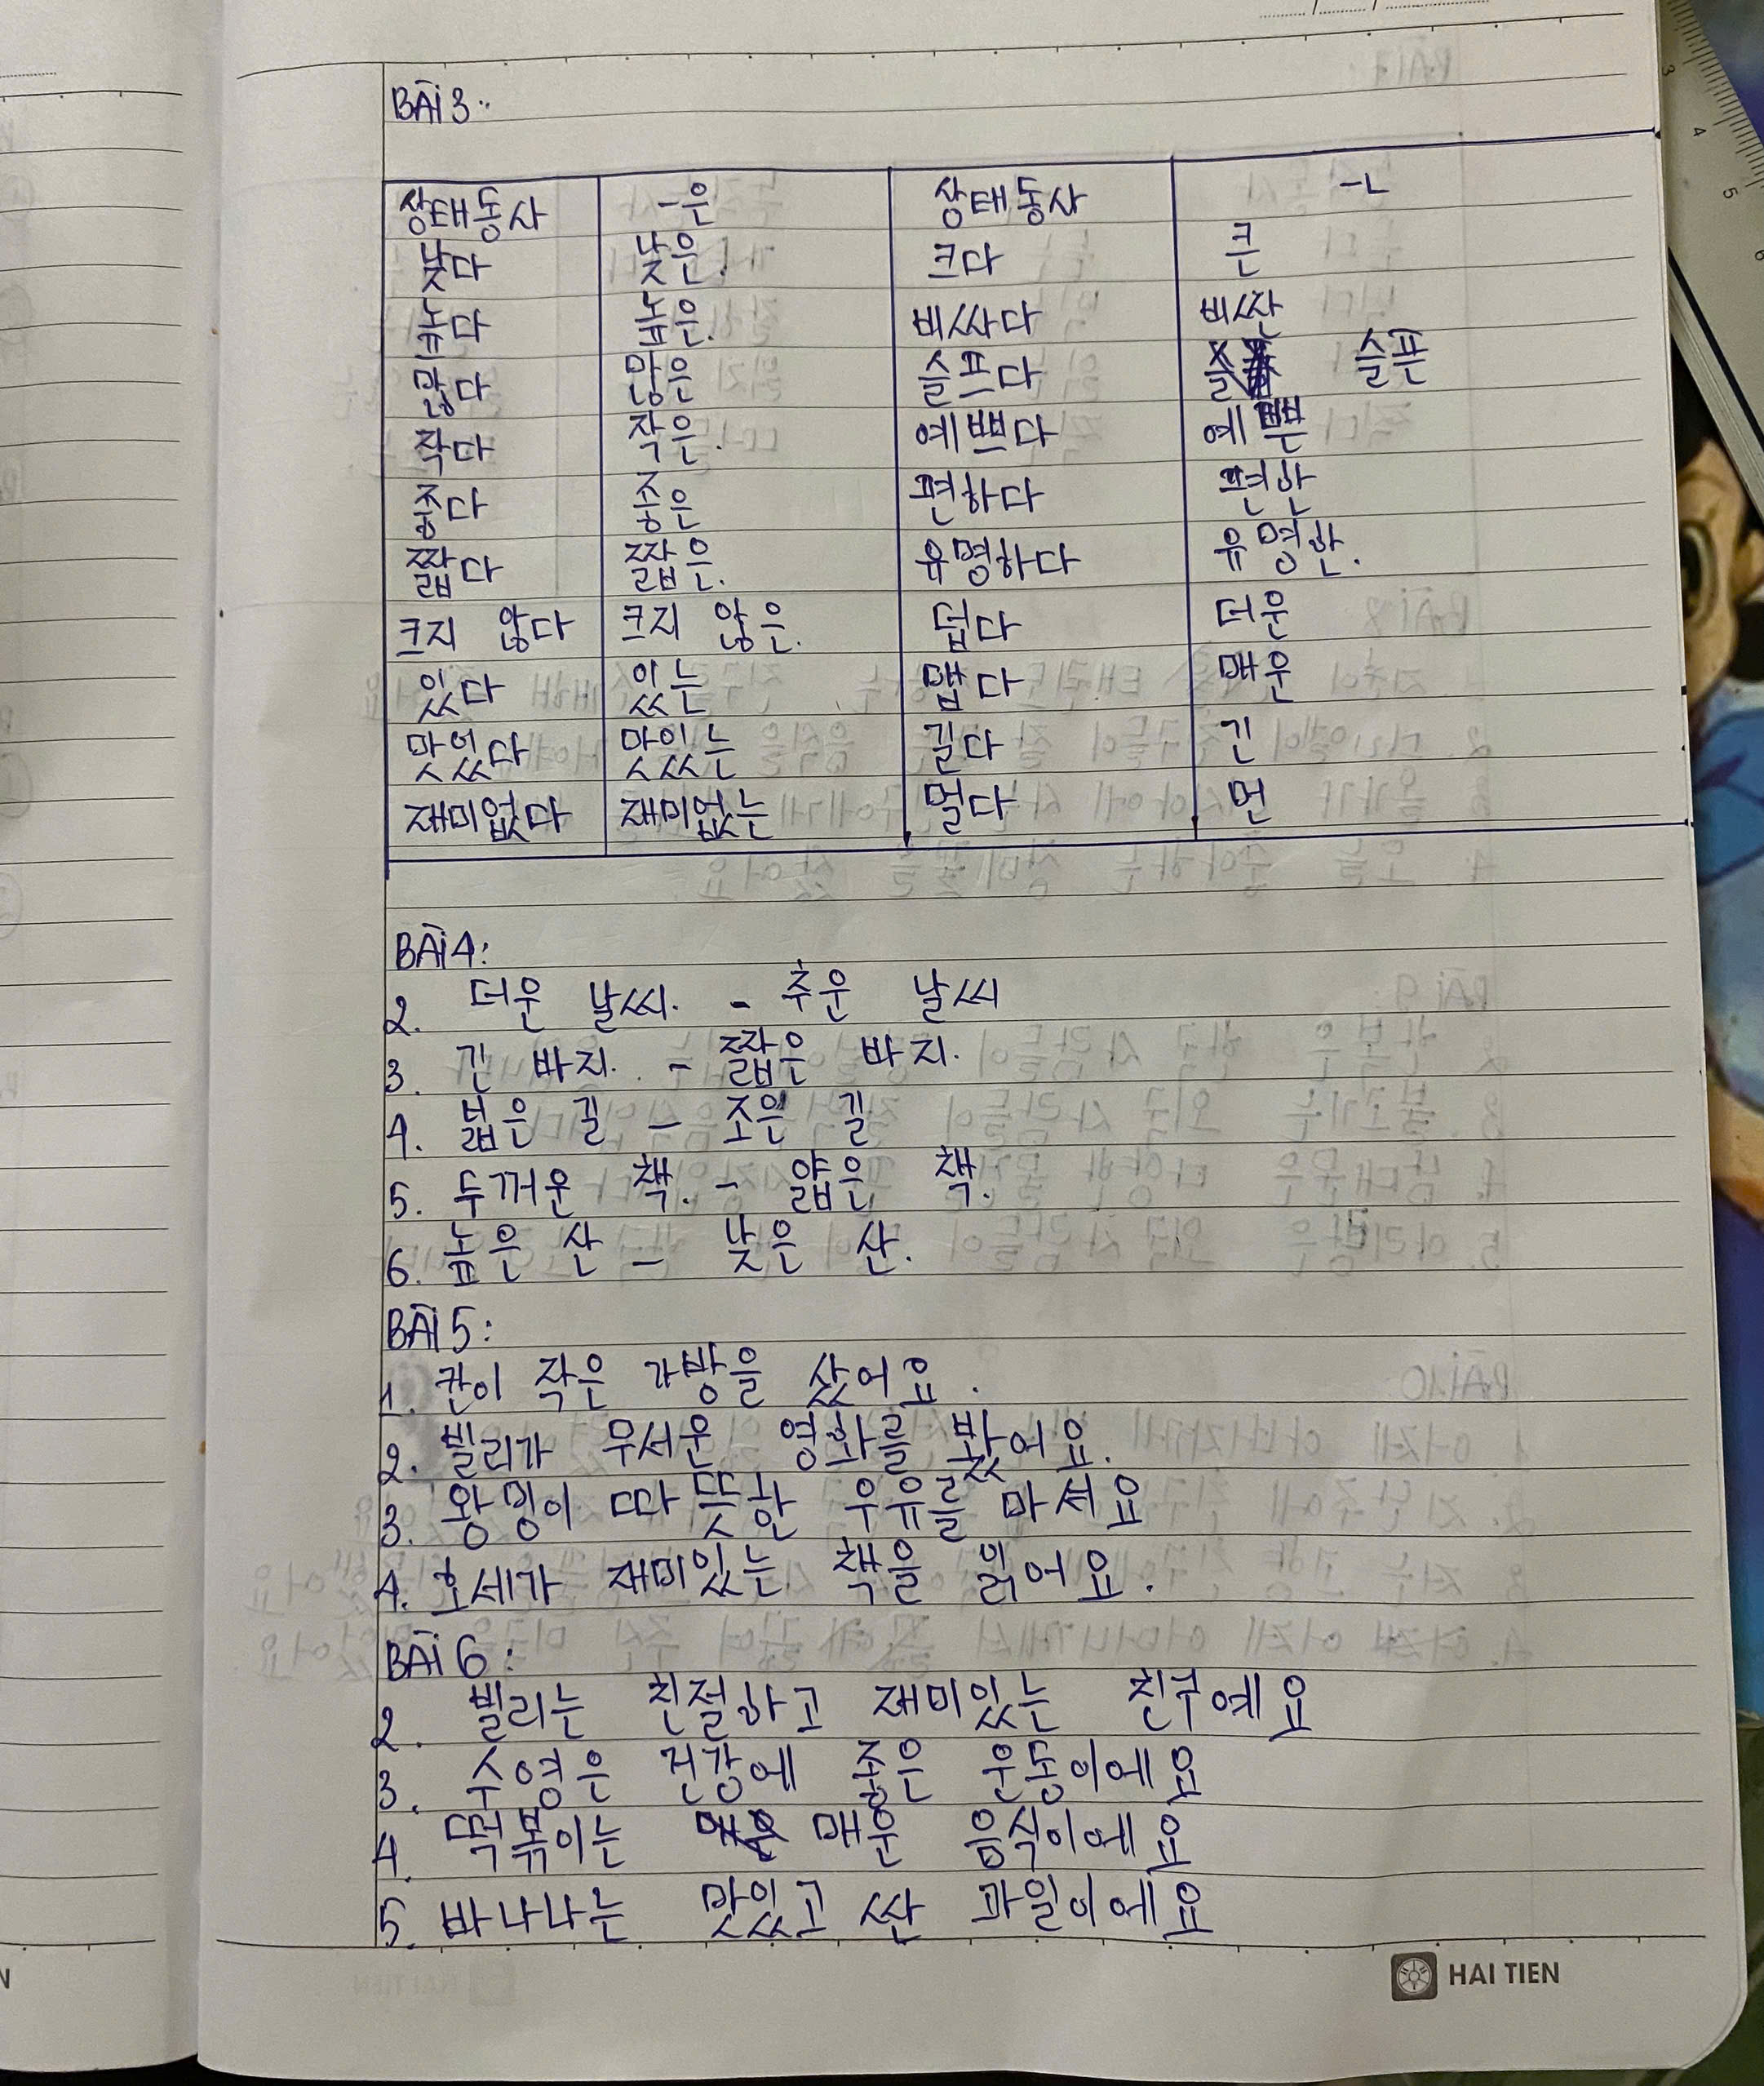 BÀI 3:
상태동사 -은 상태동사 -ㄴ
낮다 낮은. 크다 큰
높다 높은. 비싸다 비싼
많다 많은 슬프다 슬픈
작다 작은. 예쁘다 예쁜
좋다 좋은 편하다 편한
짧다 짧은. 유명하다 유명한.
크지 않다 크지 않은. 덥다 더운
있다 있는 맵다 매운
맛있다 맛있는 길다 긴
재미없다 재미없는 멀다 먼
BÀI 4:
2. 더운 날씨. - 추운 날씨
3. 긴 바지. - 짧은 바지.
4. 넓은 길 - 조은 길
5. 두꺼운 책. - 얇은 책.
6. 높은 산 - 낮은 산.
BÀI 5:
1. 칸이 작은 가방을 샀어요.
2. 빌리가 무서운 영화를 봤어요.
3. 왕밍이 따뜻한 우유를 마셔요
4. 호세가 재미있는 책을 읽어요.
BÀI 6:
2. 빌리는 친절하고 재미있는 친구예요
3. 수영은 건강에 좋은 운동이에요
4. 떡볶이는 매운 음식이에요
5. 바나나는 맛있고 싼 과일이에요
HAI TIEN